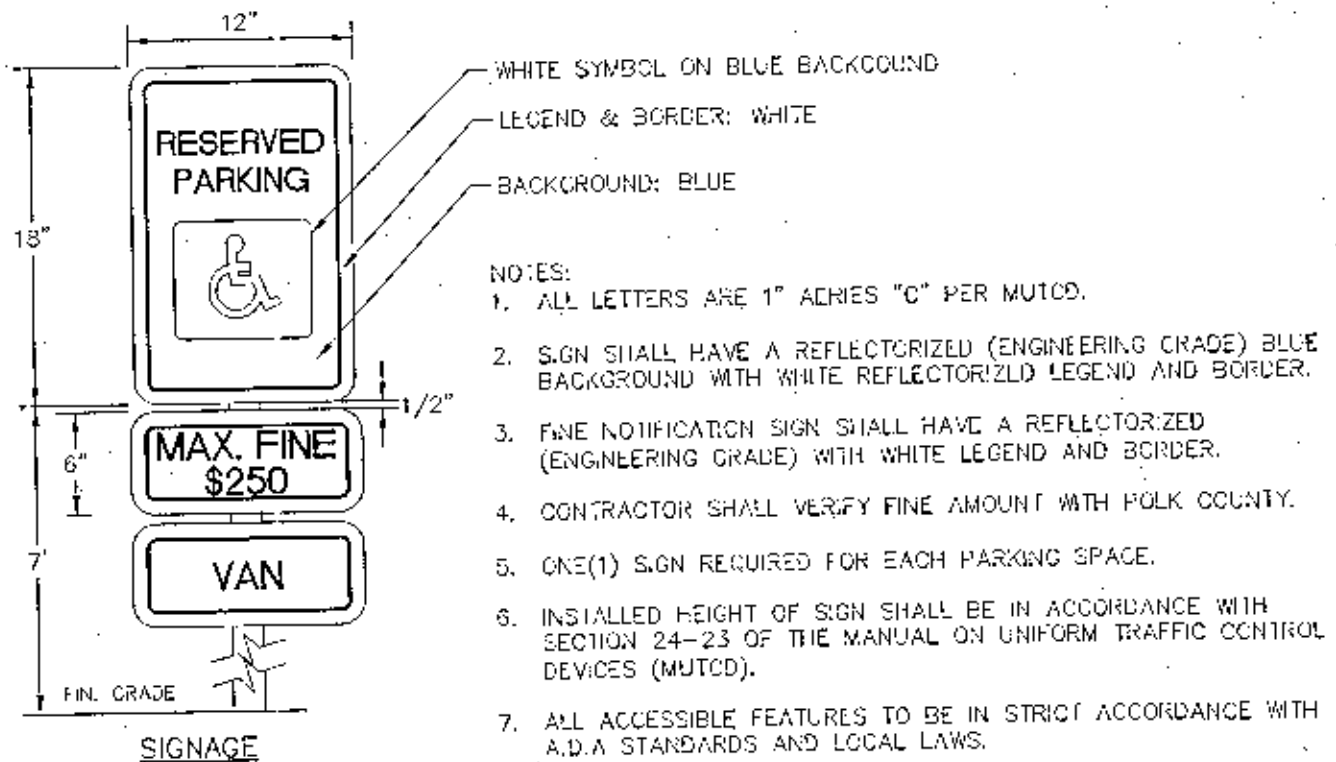 12"
WHITE SYMBOL ON BLUE BACKGOUND
LEGEND & BORDER: WHITE
BACKGROUND: BLUE
RESERVED
PARKING
18"
1/2"
MAX. FINE
$250
6"
VAN
7'
FIN. GRADE
SIGNAGE
NOTES:
1. ALL LETTERS ARE 1" AERIES "C" PER MUTCD.
2. SIGN SHALL HAVE A REFLECTORIZED (ENGINEERING GRADE) BLUE
BACKGROUND WITH WHITE REFLECTORIZED LEGEND AND BORDER.
3. FINE NOTIFICATION SIGN SHALL HAVE A REFLECTORIZED
(ENGINEERING GRADE) WITH WHITE LEGEND AND BORDER.
4. CONTRACTOR SHALL VERIFY FINE AMOUNT WITH POLK COUNTY.
5. ONE(1) SIGN REQUIRED FOR EACH PARKING SPACE.
6. INSTALLED HEIGHT OF SIGN SHALL BE IN ACCORDANCE WITH
SECTION 24-23 OF THE MANUAL ON UNIFORM TRAFFIC CONTROL
DEVICES (MUTCD).
7. ALL ACCESSIBLE FEATURES TO BE IN STRICT ACCORDANCE WITH
A.D.A STANDARDS AND LOCAL LAWS.